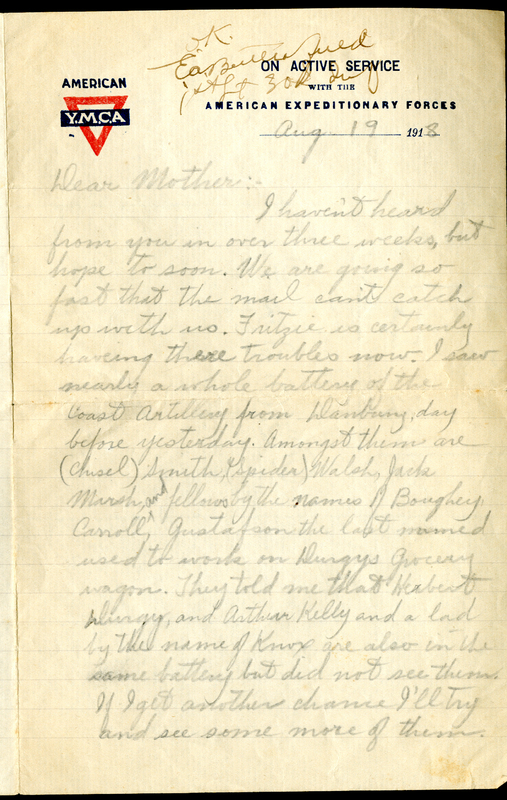 O.K.
Ea. Butterfield
1st Lt 30
AMERICAN
Y.M.C.A
ON ACTIVE SERVICE
WITH THE
AMERICAN EXPEDITIONARY FORCES
Aug 19 1918
Dear Mother:-
I haven't heard
from you in over three weeks, but
hope to soon. We are going so
fast that the mail can't catch
up with us. Fritzie is certainly
haveing there troubles now. I saw
nearly a whole battery of the
Coast Artillery from Danbury, day
before yesterday. Amongst them are
(Chisel) Smith, (Spider) Walsh, Jack
Marsh, and fellows by the names of Boughey,
Carroll, Gustafson the last named
used to work on Durgys Grocery
wagon. They told me that Herbert
Durgy, and Arthur Kelly and a lad
by the name of Knox are also in the
same battery but did not see them.
If I get another chance I'll try
and see some more of them.